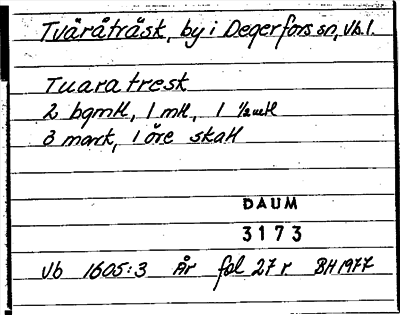 Tväråträsk, by i Degerfors sn, Vb.l.
Tuara tresk
2 bgmtl, 1 mtl, 1 ½ mtl
3 mark, 1 öre skatt
DAUM
3173
Vb 1605:3 År fol 27 r BH 1977